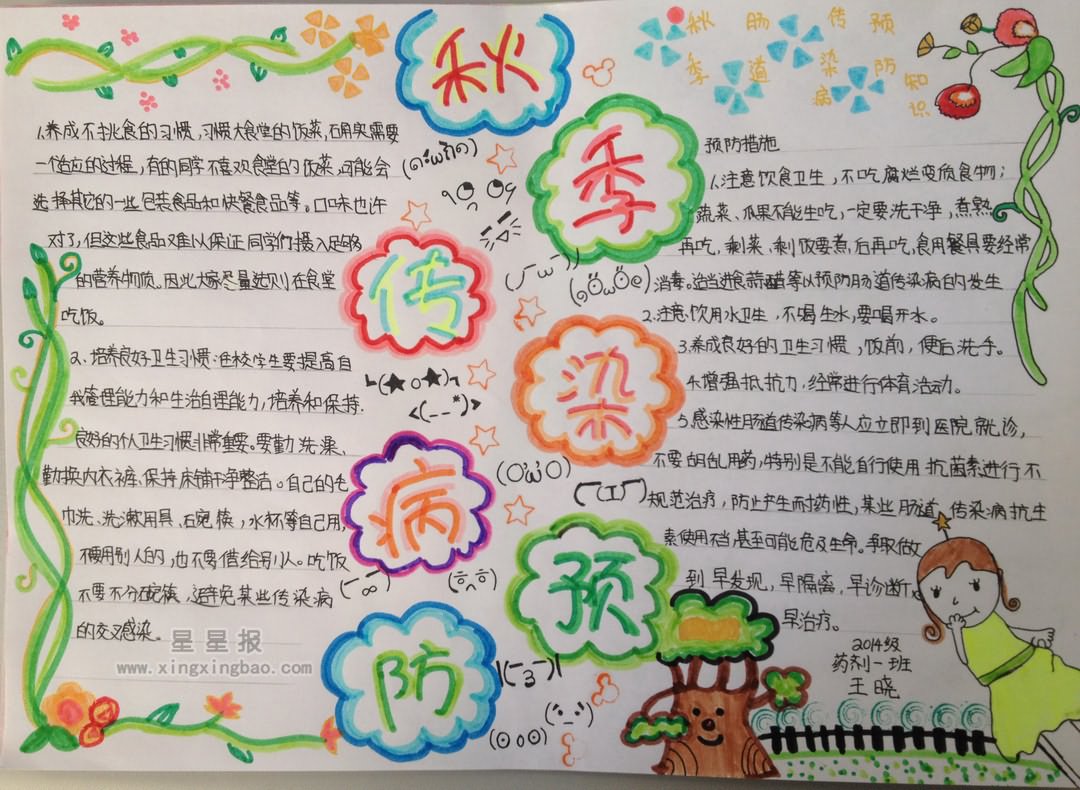 秋季传染病预防
秋肠传预
季道染防知
病识
1.养成不挑食的习惯,习惯大食堂的饭菜,确实需要
一个适应的过程,有的同学不喜欢食堂的饭菜,可能会
选择其它的一些包装食品和快餐食品等。口味也许
对了,但这些食品难以保证同学们摄入足够
的营养物质,因此大家尽量选则在食堂
吃饭。
2、培养良好卫生习惯:住校学生要提高自
我管理能力和生活自理能力,培养和保持
良好的个人卫生习惯非常重要。要勤洗澡、
勤换内衣裤、保持床铺干净整洁。自己的毛
巾洗、洗漱用具、碗筷,水杯等自己用,
不要用别人的,也不要借给别人。吃饭
不要不分碗筷,避免某些传染病
的交叉感染。
星星报
www.xingxingbao.com
预防措施
1.注意饮食卫生,不吃腐烂变质食物;
蔬菜、瓜果不能生吃,一定要洗干净,煮熟
再吃,剩菜、剩饭要煮后再吃,食用餐具要经常
消毒。适当进食蒜醋等以预防肠道传染病的发生
2.注意饮用水卫生,不喝生水,要喝开水。
3.养成良好的卫生习惯,饭前,便后洗手。
4.增强抵抗力.经常进行体育活动。
5.感染性肠道传染病等人应立即到医院就诊,
不要胡乱用药,特别是不能自行使用抗菌素进行不
规范治疗,防止产生耐药性,某些肠道,传染病抗生
素使用不当甚至可能危及生命。争取做
到早发现,早隔离,早诊断,
早治疗。
2014级
药剂一班
王晓